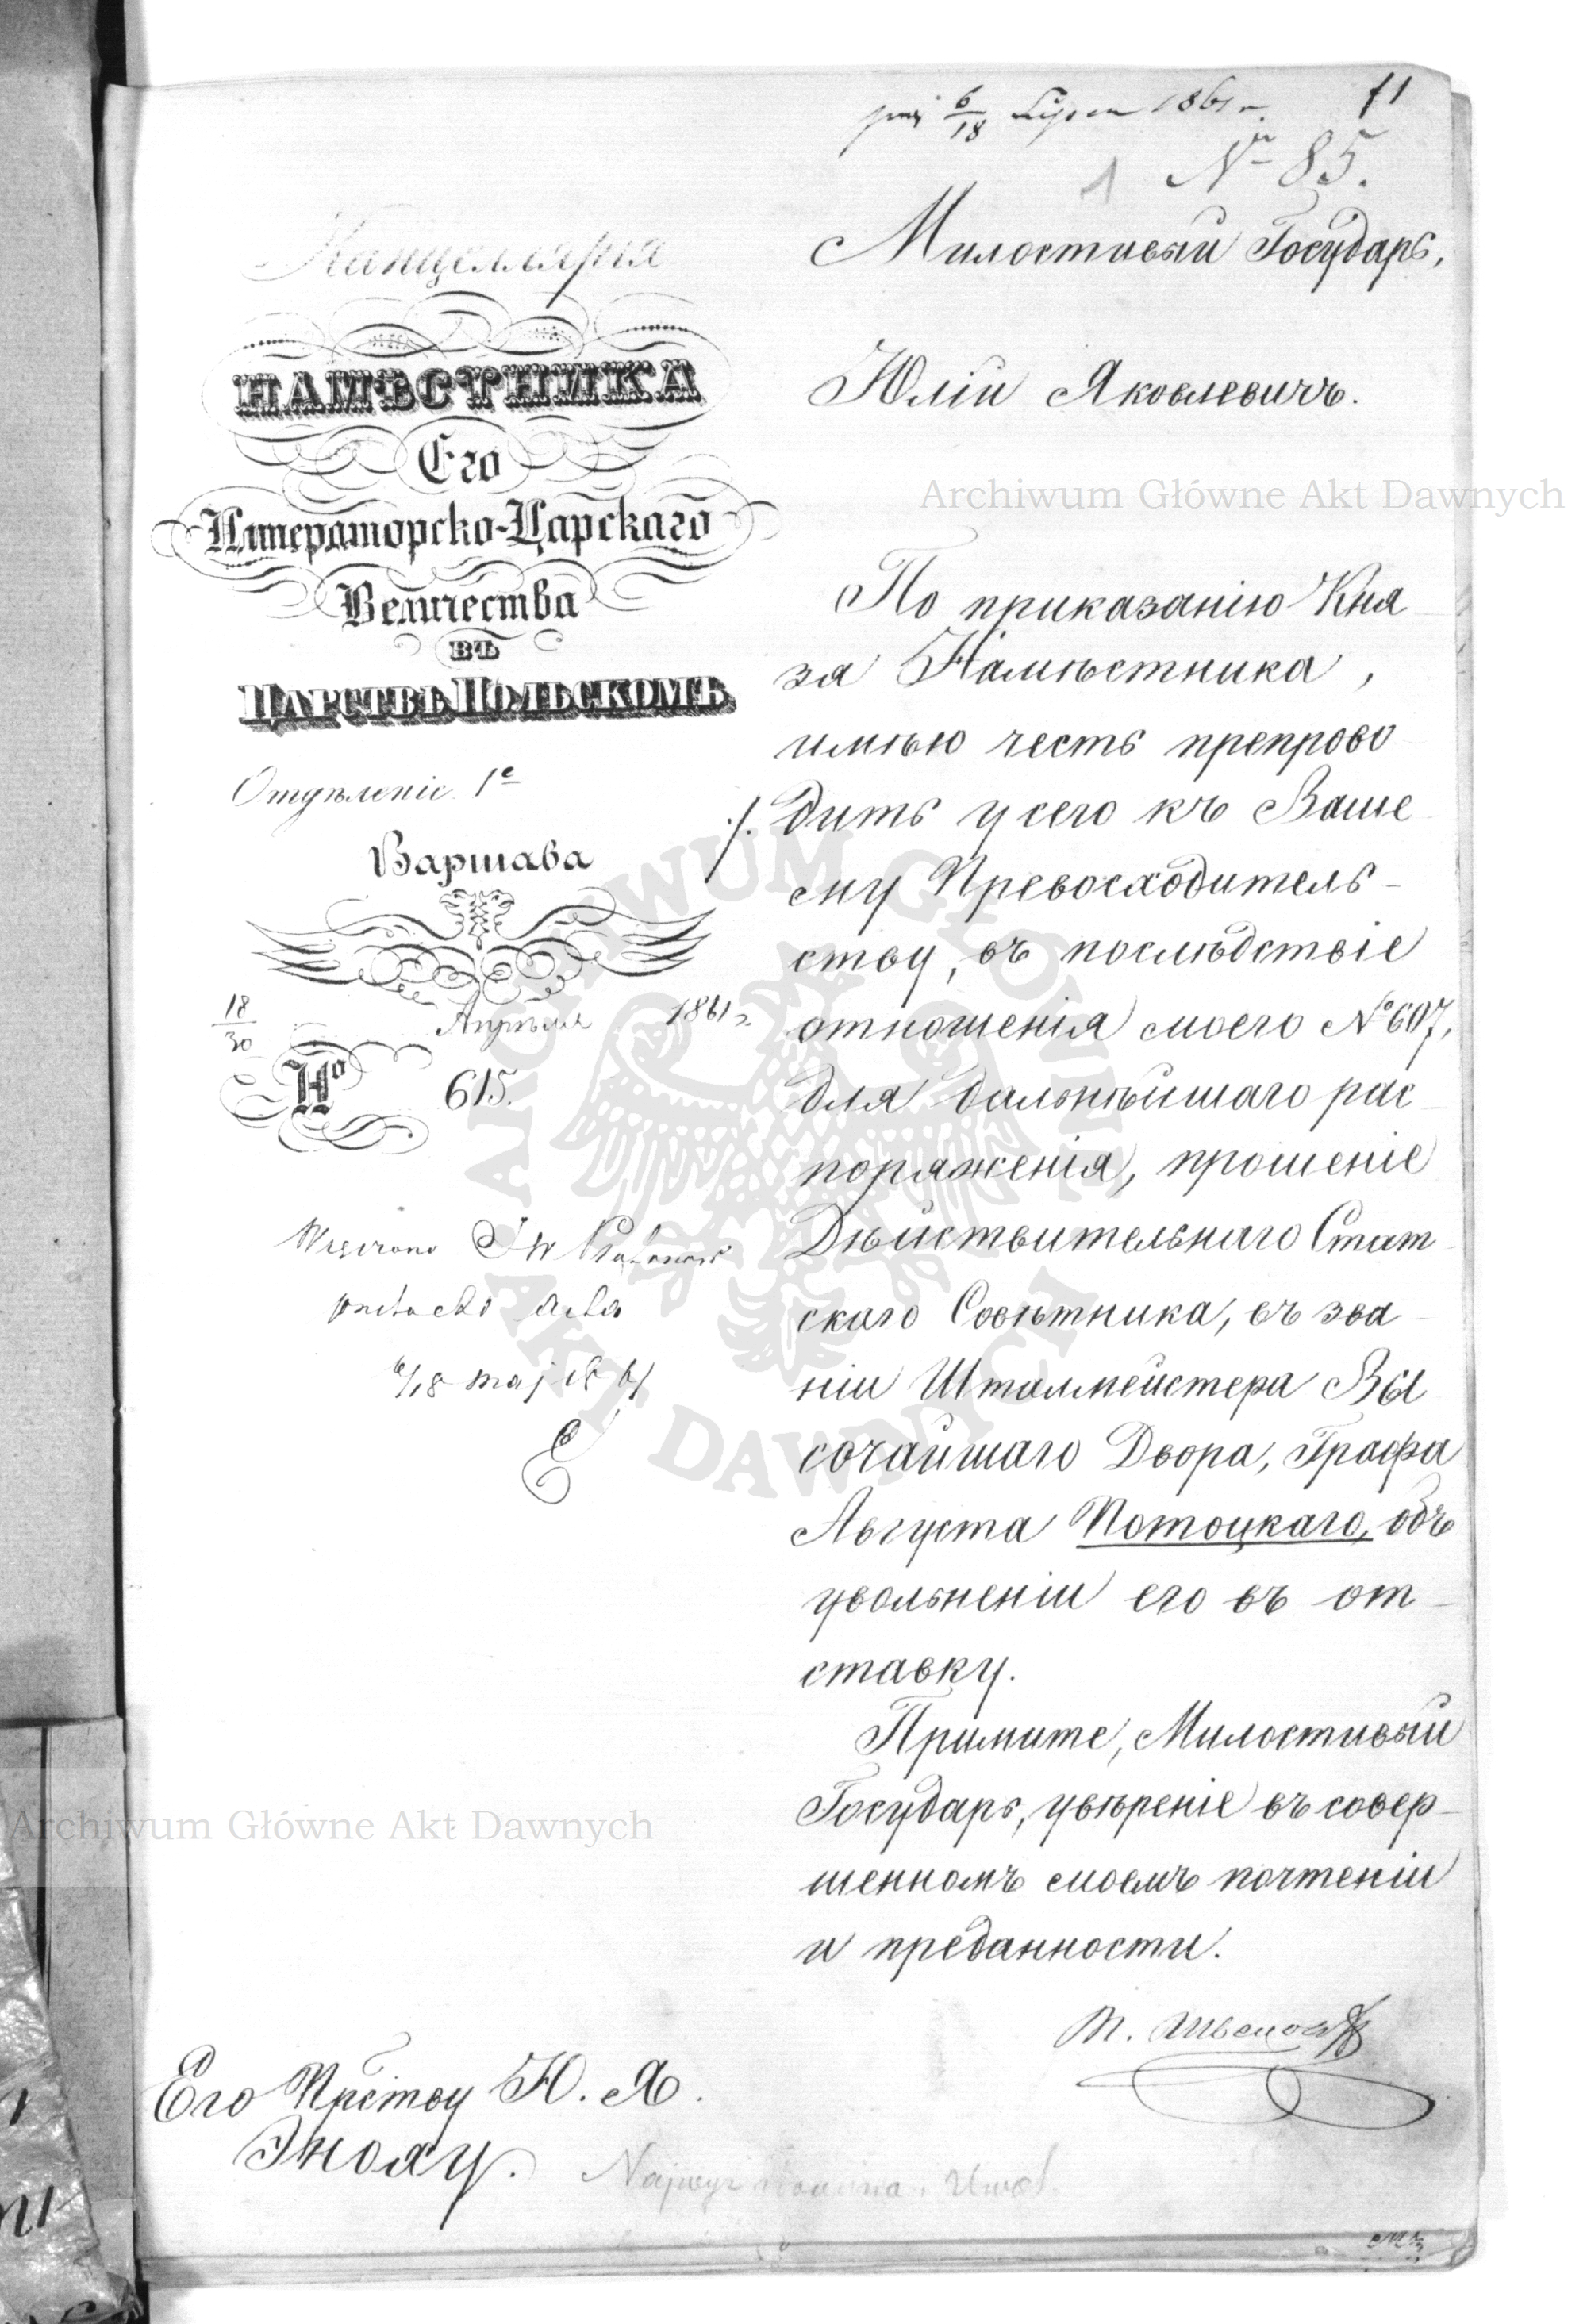 6/18 1861 r. 71
Nr 85.
1
Канцелярія
НАМѢСТНИКА
Его
Императорско-Царскаго
Величества
ВЪ
ЦАРСТВѢ ПОЛЬСКОМЪ
Отдѣленіе 1е
Варшава
18/30 Апрѣля 1861 г.
№ 615.
6/18 maj 1861
Милостивый Государь,
Юлій Яковлевичъ.
По приказанію Кня
зя Намѣстника,
имѣю честь препрово
./. дить у сего къ Ваше
му Превосходитель-
ству, въ послѣдствіе
отношенія моего № 607,
для дальнѣйшаго рас
поряженія, прошеніе
Дѣйствительнаго Стат
скаго Совѣтника, въ зва
ніи Шталмейстера Вы
сочайшаго Двора, Графа
Августа Потоцкаго, объ
увольненіи его въ от
ставку.
Примите, Милостивый
Государь, увѣреніе въ совер-
шенномъ моемъ почтеніи
и преданности.
Его Прству Ю. Я.
Эноху.
Archiwum Główne Akt Dawnych
Archiwum Główne Akt Dawnych
ARCHIWUM GŁÓWNE AKT DAWNYCH